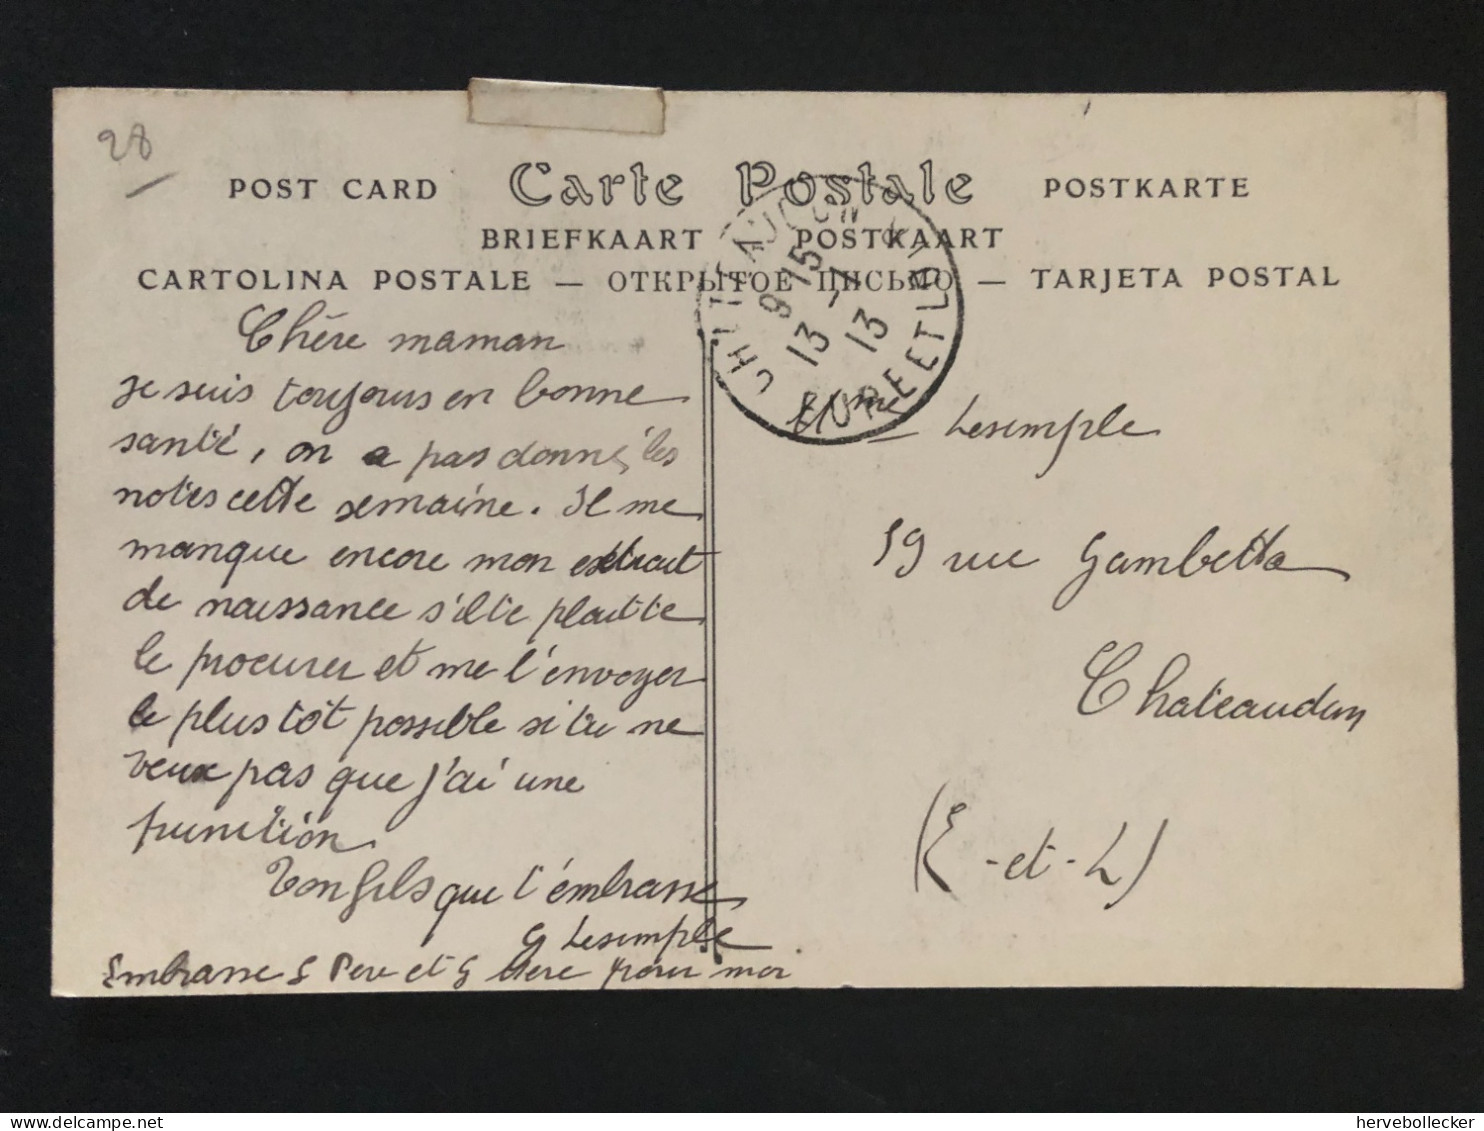 28
POST CARD Carte Postale POSTKARTE
BRIEFKAART POSTKAART
CARTOLINA POSTALE — ОТКРЫТОЕ ПИСЬМО — TARJETA POSTAL
CHATEAUDUN
9 15
13 - 7
13
EURE ET LOIR
Chère maman
je suis toujours en bonne
santé, on a pas donné les
notes cette semaine. Il me
manque encore mon extrait
de naissance s'il te plait te
le procurer et me l'envoyer
le plus tôt possible si tu ne
veux pas que j'ai une
punition.
Ton fils que t'embrasse
G Lesimple
Embrasse G Père et G Mère pour moi
Mme Lesimple
19 rue Gambetta
Chateaudun
(E-et-L)
hervebollecker